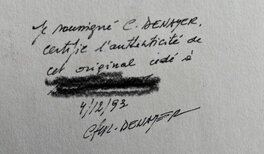 Je soussigné C. DENAYER,
certifie l'authenticité de
cet original cédé à
4/12/93
CHR-DENAYER